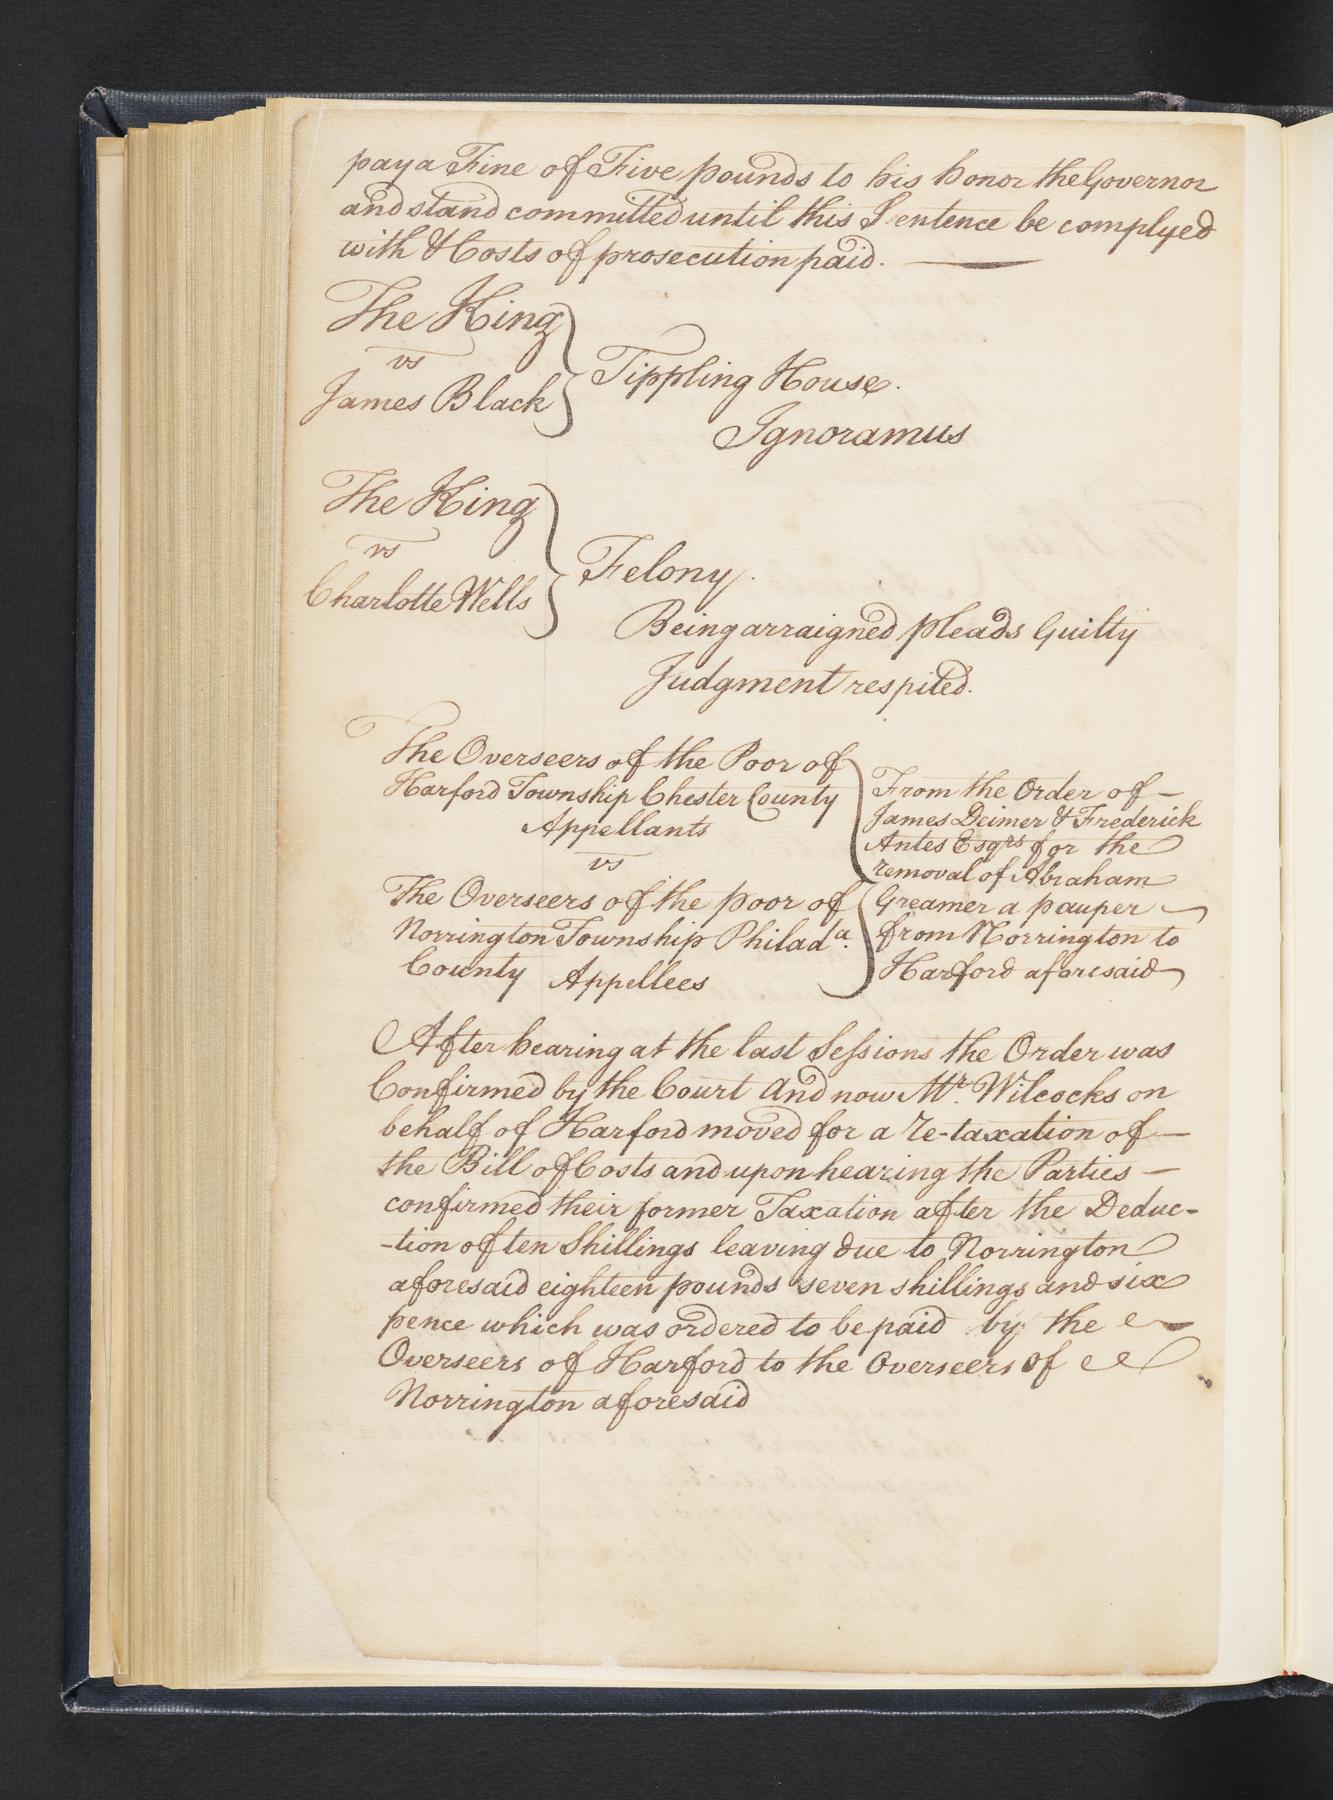 pay a Fine of Five pounds to his honor the Governor
and stand committed until this Sentence be complyed
with & Costs of prosecution paid.
The King
vs
James Black
Tippling House.
Ignoramus
The King
vs
Charlotte Wells
Felony.
Being arraigned pleads Guilty
Judgment respited.
The Overseers of the Poor of
Harford Township Chester County
Appellants
vs
The Overseers of the poor of
Norrington Township Philada.
County Appellees
From the Order of —
James Deimer & Frederick
Antes Esqrs for the
removal of Abraham
Greamer a pauper
from Norrington to
Harford aforesaid
After hearing at the last Sessions the Order was
Confirmed by the Court and now Mr. Wilcocks on
behalf of Harford moved for a re-taxation of —
the Bill of Costs and upon hearing the Parties —
confirmed their former Taxation after the Deduc-
-tion of ten Shillings leaving due to Norrington
aforesaid eighteen pounds seven shillings and six
pence which was ordered to be paid by the
Overseers of Harford to the Overseers of
Norrington aforesaid